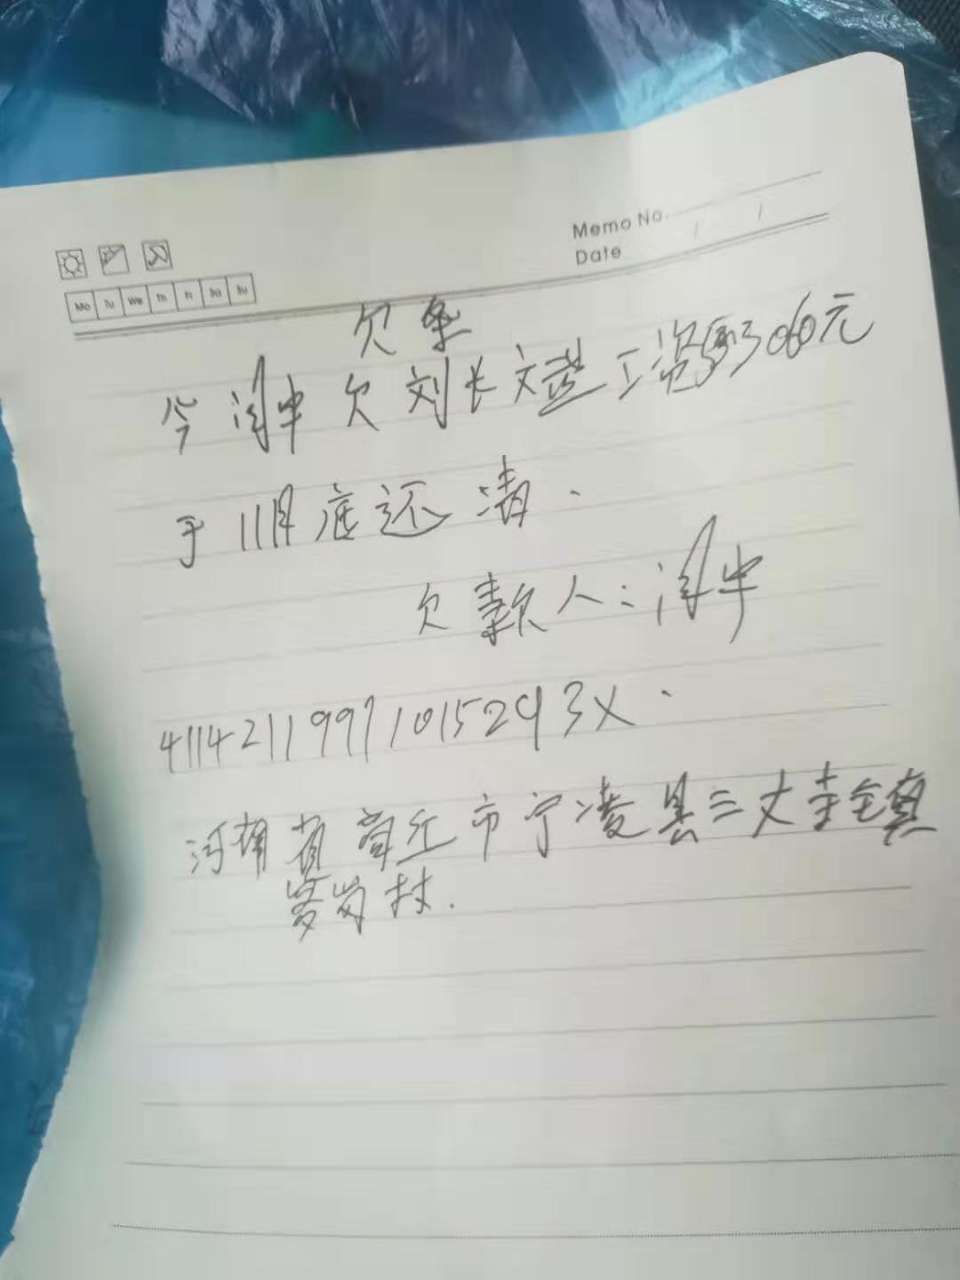 Memo No.
Date / /
Mo Tu We Th Fr Sa Su
欠条
今闫中欠刘长文 工资 3060元
于11月底还清.
欠款人:闫中
41142119971015293X.
河南省商丘市宁凌县三丈寺镇
岗村.